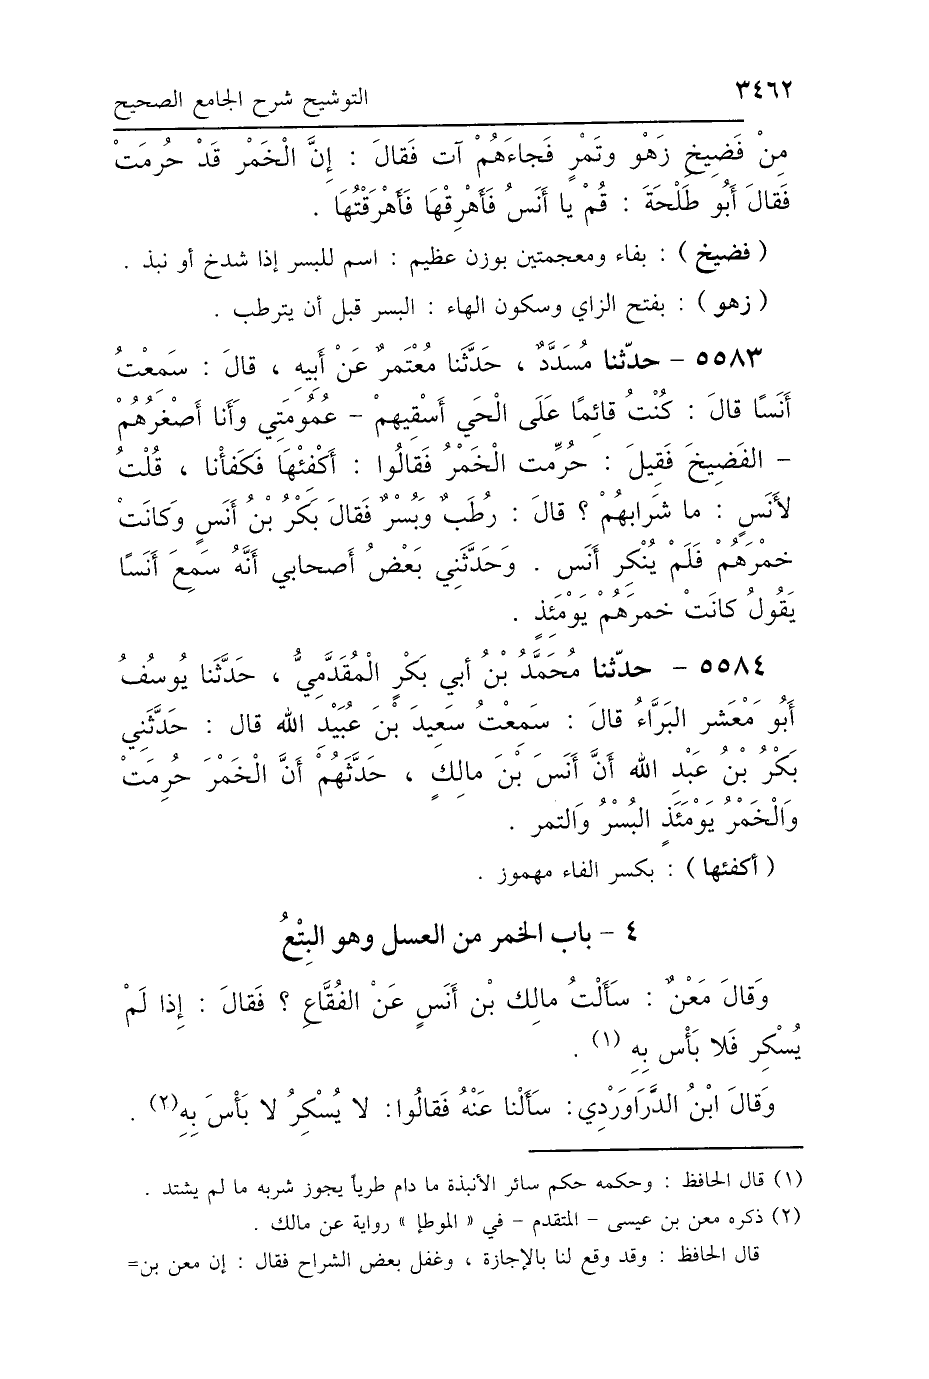 ٣٤٦٢
التوشيح شرح الجامع الصحيح
مِنْ فَضِيخِ زَهْو وتَمْرٍ فَجاءَهُمْ آت فَقالَ : إِنَّ الْخَمْر قَدْ حُرمَتْ
فَقالَ أَبُو طَلْحَةَ : قُمْ يا أَنَسُ فَأَهْرِقْهَا فَأَهْرَقْتُهَا .
( فضيخ ) : بفاء ومعجمتين بوزن عظيم : اسم للبسر إذا شدخ أو نبذ .
( زهو ) : بفتح الزاي وسكون الهاء : البسر قبل أن يترطب .
٥٥٨٣ – حدّثنا مُسَدَّدٌ ، حَدَّثَنا مُعْتَمرٌ عَنْ أَبيهِ ، قالَ : سَمعْتُ
أَنَسًا قالَ : كُنْتُ قائِمًا عَلَى الْحَي أَسْقِيهمْ – عُمُومَتِي وَأَنا أَصْغَرُهُمْ
– الفَضِيخَ فَقِيلَ : حرُمّت الْخَمْرُ فَقالُوا : أَكْفئْهَا فَكَفأْنا ، قُلْتُ
لأَنَسٍ : ما شَرابهُمْ ؟ قالَ : رُطَبٌ وَبُسْرٌ فَقالَ بَكْرُ بْنُ أَنَسٍ وَكانَتْ
خمْرَهُمْ فَلَمْ يُنْكِر أَنَس . وَحَدَّثَنِي بَعْضُ أَصحابي أَنَّهُ سَمِعَ أَنَسًا
يَقُولُ كانَتْ خمرَهُمْ يَوْمَئذٍ .
٥٥٨٤ – حدّثنا مُحَمَّدُ بْنُ أبي بَكْرٍ الْمُقَدَّميُّ ، حَدَّثَنا يُوسُفُ
أَبُو مَعْشَر البَرَّاءُ قالَ : سَمعْتُ سَعِيدَ بْنَ عُبَيْدِ الله قال : حَدَّثَنِي
بَكْرُ بْنُ عَبْدِ الله أَنَّ أَنَسَ بْنَ مالِكٍ ، حَدَّثَهُمْ أَنَّ الْخَمْرَ حُرِمَتْ
وَالْخَمْرُ يَوْمَئَذٍ البُسْرُ وَالتمر .
( أكفئها ) : بكسر الفاء مهموز .
٤ – باب الخمر من العسل وهو البِتْعُ
وَقالَ مَعْنٌ : سَأَلْتُ مالِك بْن أَنَسٍ عَنْ الفُقَّاعِ ؟ فَقالَ : إِذا لَمْ
يُسْكِر فَلا بَأْس بِهِ (١) .
وَقالَ ابْنُ الدَّرَاوَرْدِي : سَأَلْنا عَنْهُ فَقالُوا : لا يُسْكِرُ لا بَأْسَ بِهِ(٢) .
(١) قال الحافظ : وحكمه حكم سائر الأنبذة ما دام طرياً يجوز شربه ما لم يشتد .
(٢) ذكره معن بن عيسى – المتقدم – في « الموطإ » رواية عن مالك .
قال الحافظ : وقد وقع لنا بالإجازة ، وغفل بعض الشراح فقال : إن معن بن=